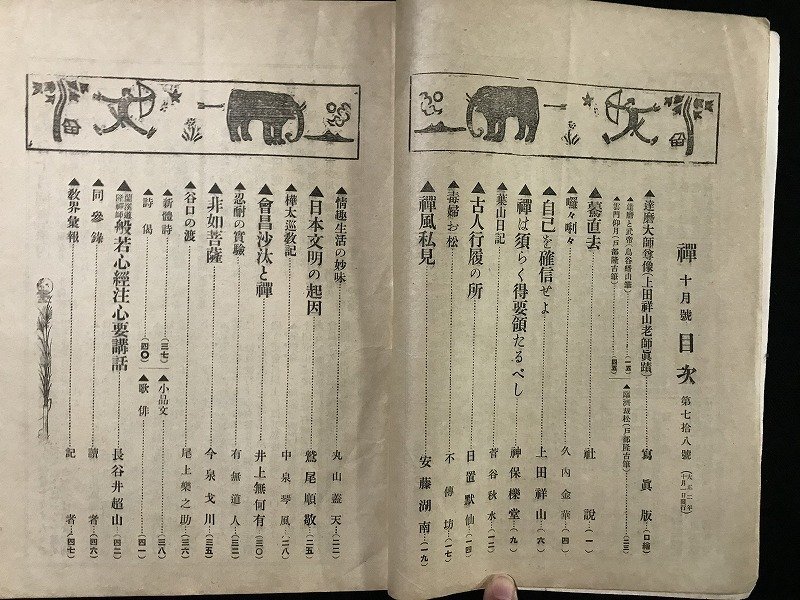 禪 十月號 目次 第七拾八號
▲達磨大師尊像(上田祥山老師眞蹟)……寫眞版…(口繪)
▲驀直去……社說…(一)
▲囉々唎々……久內金華…(四)
▲自己を確信せよ……上田祥山…(六)
▲禪は須らく得要領たるべし……神保櫟堂…(九)
▲葉山日記……菅谷秋水…(一二)
▲古人行履の所……日置默仙…(一四)
▲毒婦お松……不傳坊…(一七)
▲禪風私見……安藤湖南…(一九)
▲情趣生活の妙味……丸山蓋天…(二二)
▲日本文明の起因……鷲尾順敬…(二五)
▲樺太巡敎記……中泉琴風…(二八)
▲會昌沙汰と禪……井上無何有…(三〇)
▲忍耐の實驗……有無道人…(三三)
▲非如菩薩……今泉戈川…(三五)
▲谷口の渡……尾上樂之助…(三六)
▲新體詩……(三七)▲小品文……(三八)
▲詩偈……(四〇)▲歌俳……(四一)
▲蘭溪道隆禪師般若心經注心要講話……長谷井超山…(四二)
▲同參錄……讀者…(四六)
▲敎界彙報……記者…(四七)